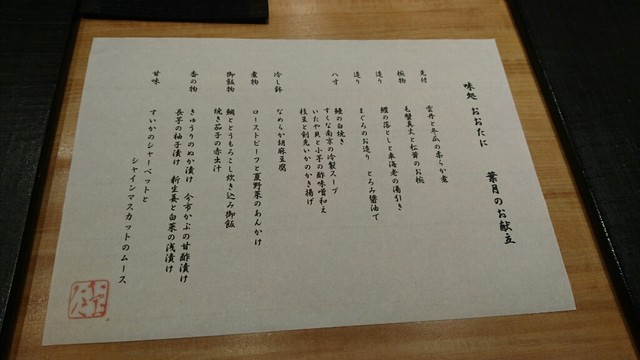 味処 おおたに 葉月のお献立
先付 雲丹と冬瓜の柔らか煮
椀物 毛蟹真丈と松茸のお椀
造り 鱧の落としと車海老の湯引き
造り まぐろのお造り とろみ醤油で
八寸 鰻の白焼き
すくな南京の冷製スープ
いたや貝と小芋の酢味噌和え
枝豆と剣先いかのかき揚げ
冷し鉢 なめらか胡麻豆腐
煮物 ローストビーフと夏野菜のあんかけ
御飯物 鯛ととうもろこし炊き込み御飯
焼き茄子の赤出汁
香の物 きゅうりのぬか漬け 今市かぶの甘酢漬け
長芋の柚子漬け 新生姜と白菜の浅漬け
甘味 すいかのシャーベットと
シャインマスカットのムース